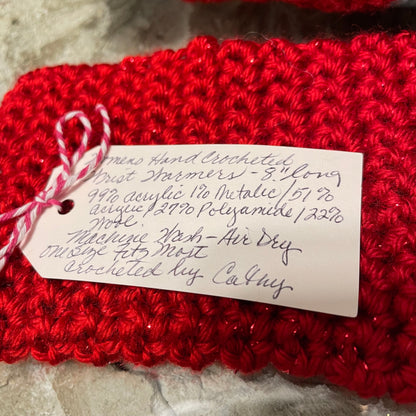 omens Hand Crocheted
Wrist Warmers - 8" long
99% acrylic 1% Metalic / 51%
acrylic / 27% Polyamide / 22%
Wool.
Machine Wash - Air Dry
One size fits Most
Crocheted by Cathy